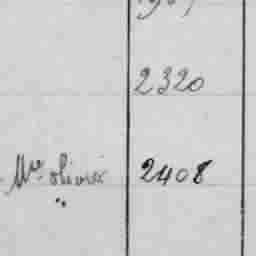 2320
Mre olivier 2408
"